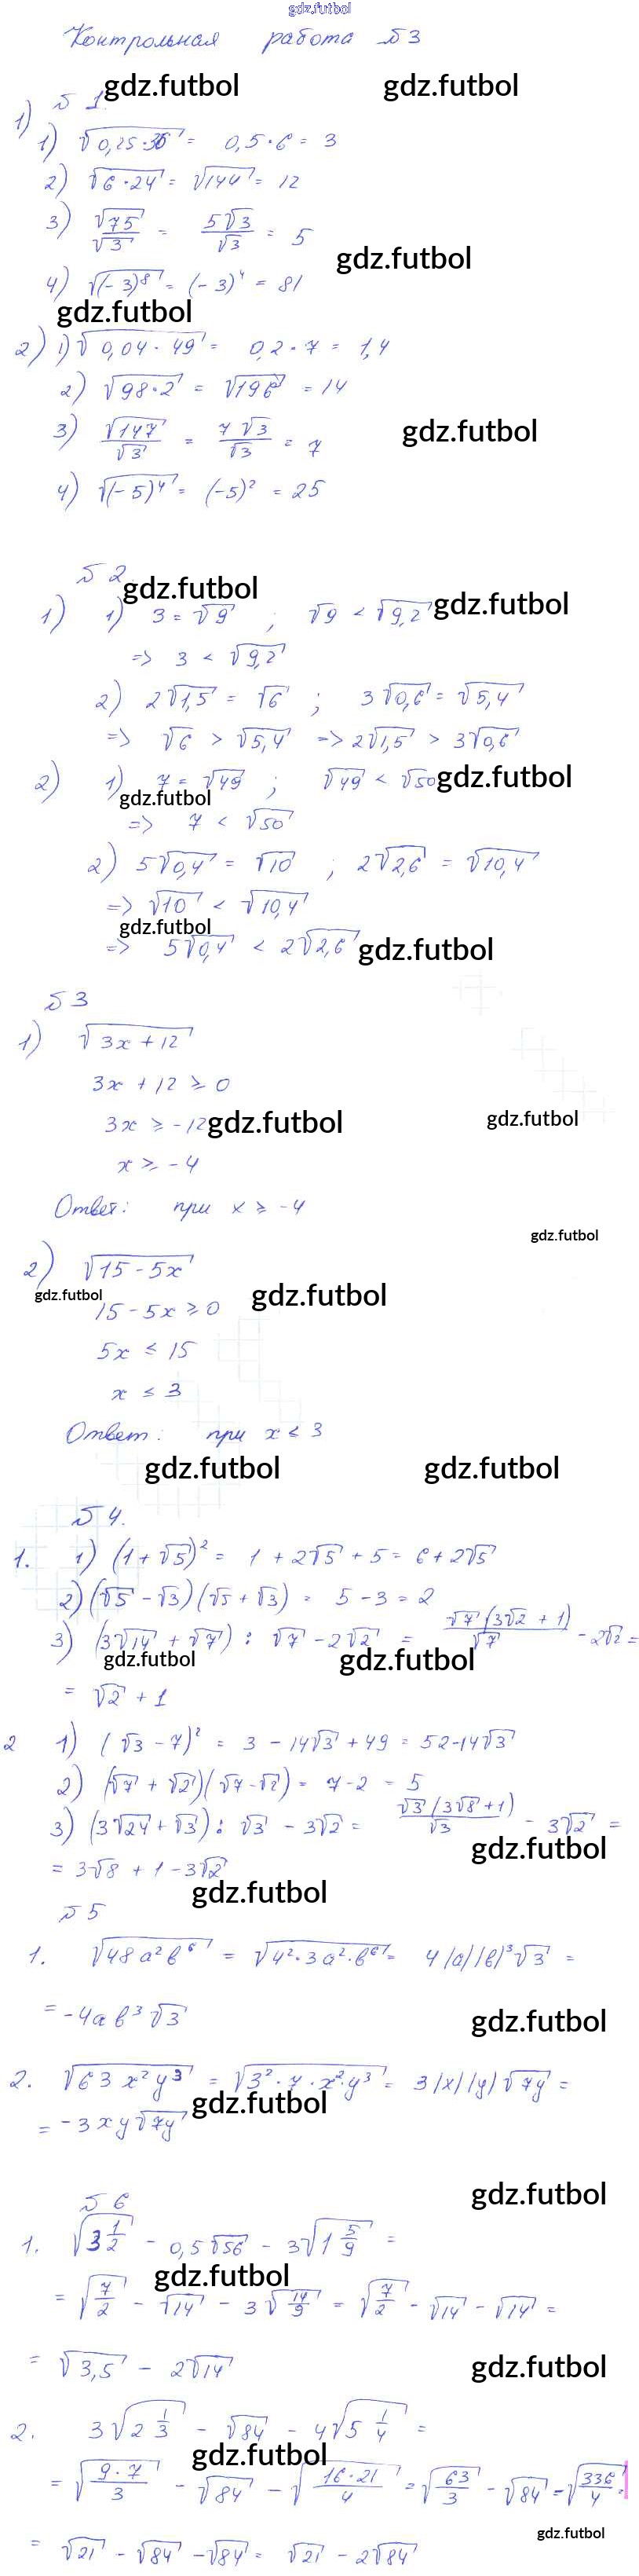 gdz.futbol
Контрольная работа №3
gdz.futbol gdz.futbol
№ 1.
1)
1) √(0,25·36) = 0,5·6 = 3
2) √(6·24) = √144 = 12
3) √75/√3 = 5√3/√3 = 5
gdz.futbol
4) √((-3)⁸) = (-3)⁴ = 81
gdz.futbol
2) 1) √(0,04·49) = 0,2·7 = 1,4
2) √(98·2) = √196 = 14
3) √147/√3 = 7√3/√3 = 7
gdz.futbol
4) √((-5)⁴) = (-5)² = 25
№ 2.
gdz.futbol
1) 1) 3 = √9 ; √9 < √9,2
gdz.futbol
=> 3 < √9,2
2) 2√1,5 = √6 ; 3√0,6 = √5,4
=> √6 > √5,4 => 2√1,5 > 3√0,6
2) 1) 7 = √49 ; √49 < √50
gdz.futbol
gdz.futbol
=> 7 < √50
2) 5√0,4 = √10 ; 2√2,6 = √10,4
=> √10 < √10,4
gdz.futbol
=> 5√0,4 < 2√2,6
gdz.futbol
№ 3
1) √(3x + 12)
3x + 12 ≥ 0
3x ≥ -12
gdz.futbol gdz.futbol
x ≥ -4
Ответ: при x ≥ -4
gdz.futbol
2) √(15 - 5x)
gdz.futbol gdz.futbol
15 - 5x ≥ 0
5x ≤ 15
x ≤ 3
Ответ: при x ≤ 3
gdz.futbol gdz.futbol
№ 4.
1. 1) (1 + √5)² = 1 + 2√5 + 5 = 6 + 2√5
2) (√5 - √3)(√5 + √3) = 5 - 3 = 2
3) (3√14 + √7) : √7 - 2√2 = √7(3√2 + 1)/√7 - 2√2 =
gdz.futbol gdz.futbol
= √2 + 1
2 1) (√3 - 7)² = 3 - 14√3 + 49 = 52-14√3
2) (√7 + √2)(√7 - √2) = 7-2 = 5
3) (3√24 + √3) : √3 - 3√2 = √3(3√8 + 1)/√3 - 3√2 =
gdz.futbol
= 3√8 + 1 - 3√2
gdz.futbol
№ 5
1. √(48a²b⁶) = √(4²·3a²·b⁶) = 4|a||b|³√3 =
= -4ab³√3
gdz.futbol
2. √(63x²y³) = √(3²·7·x²·y³) = 3|x||y|√7y =
gdz.futbol
= -3xy√7y
gdz.futbol
№ 6
1. √(3 1/2) - 0,5√56 - 3√(1 5/9) =
gdz.futbol
= √(7/2) - √14 - 3√(14/9) = √(7/2) - √14 - √14 =
= √3,5 - 2√14
gdz.futbol
2. 3√(2 1/3) - √84 - 4√(5 1/4) =
gdz.futbol
= √(9·7/3) - √84 - √(16·21/4) = √(63/3) - √84 - √(336/4) =
gdz.futbol
= √21 - √84 - √84 = √21 - 2√84